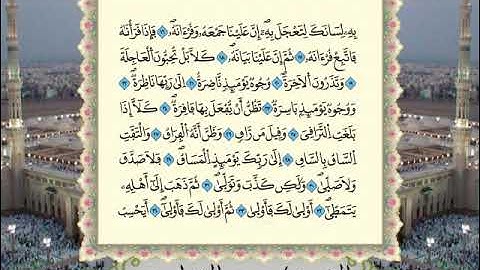 بِهِۦ لِسَانَكَ لِتَعْجَلَ بِهِۦٓ ۝١٦ إِنَّ عَلَيْنَا جَمْعَهُۥ وَقُرْءَانَهُۥ ۝١٧ فَإِذَا قَرَأْنَٰهُ
فَٱتَّبِعْ قُرْءَانَهُۥ ۝١٨ ثُمَّ إِنَّ عَلَيْنَا بَيَانَهُۥ ۝١٩ كَلَّا بَلْ تُحِبُّونَ ٱلْعَاجِلَةَ
۝٢٠ وَتَذَرُونَ ٱلْءَاخِرَةَ ۝٢١ وُجُوهٌ يَوْمَئِذٍ نَّاضِرَةٌ ۝٢٢ إِلَىٰ رَبِّهَا نَاظِرَةٌ ۝٢٣
وَوُجُوهٌ يَوْمَئِذٍۭ بَاسِرَةٌ ۝٢٤ تَظُنُّ أَن يُفْعَلَ بِهَا فَاقِرَةٌ ۝٢٥ كَلَّآ إِذَا
بَلَغَتِ ٱلتَّرَاقِىَ ۝٢٦ وَقِيلَ مَنْ رَاقٍ ۝٢٧ وَظَنَّ أَنَّهُ ٱلْفِرَاقُ ۝٢٨ وَٱلْتَفَّتِ
ٱلسَّاقُ بِٱلسَّاقِ ۝٢٩ إِلَىٰ رَبِّكَ يَوْمَئِذٍ ٱلْمَسَاقُ ۝٣٠ فَلَا صَدَّقَ
وَلَا صَلَّىٰ ۝٣١ وَلَٰكِن كَذَّبَ وَتَوَلَّىٰ ۝٣٢ ثُمَّ ذَهَبَ إِلَىٰٓ أَهْلِهِۦ
يَتَمَطَّىٰٓ ۝٣٣ أَوْلَىٰ لَكَ فَأَوْلَىٰ ۝٣٤ ثُمَّ أَوْلَىٰ لَكَ فَأَوْلَىٰٓ ۝٣٥ أَيَحْسَبُ